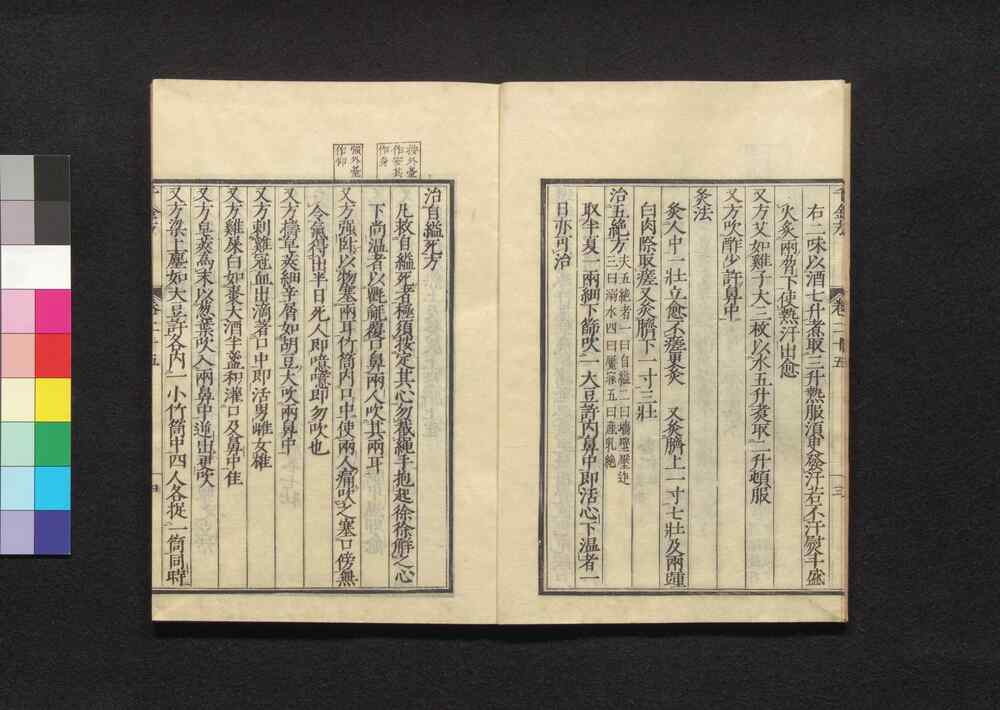 右二味以酒七升煮取三升熱服須臾發汗若不汗熨千盛
火炙兩脅下使熱汗出愈
又方艾如雞子大三枚以水五升煮取二升頓服
又方吹酢少許鼻中
灸法
灸人中一壯立愈不瘥更灸　又灸臍上一寸七壯及兩踵
白肉際取瘥又灸臍下一寸三壯
治五絕方夫五絕者一曰自縊二曰墻壁壓迮
三曰溺水四曰魘寐五曰產乳絕
取半夏一兩細下篩吹一大豆許內鼻中即活心下溫者一
日亦可治
按外臺
作安其
作身
強外臺
作仰
治自縊死方
凡救自縊死者極須按定其心勿截繩手抱起徐徐解之心
下尚溫者以氍毹覆口鼻兩人吹其兩耳
又方強臥以物塞兩耳竹筒內口中使兩人痛吹之塞口傍無
令氣得出半日死人即噫噫即勿吹也
又方擣皂莢細辛屑如胡豆大吹兩鼻中
又方刺雞冠血出滴著口中即活男雌女雄
又方雞屎白如棗大酒半盞和灌口及鼻中佳
又方皂莢為末以葱葉吹入兩鼻中逆出更吹
又方梁上塵如大豆許各內一小竹筒中四人各捉一筒同時